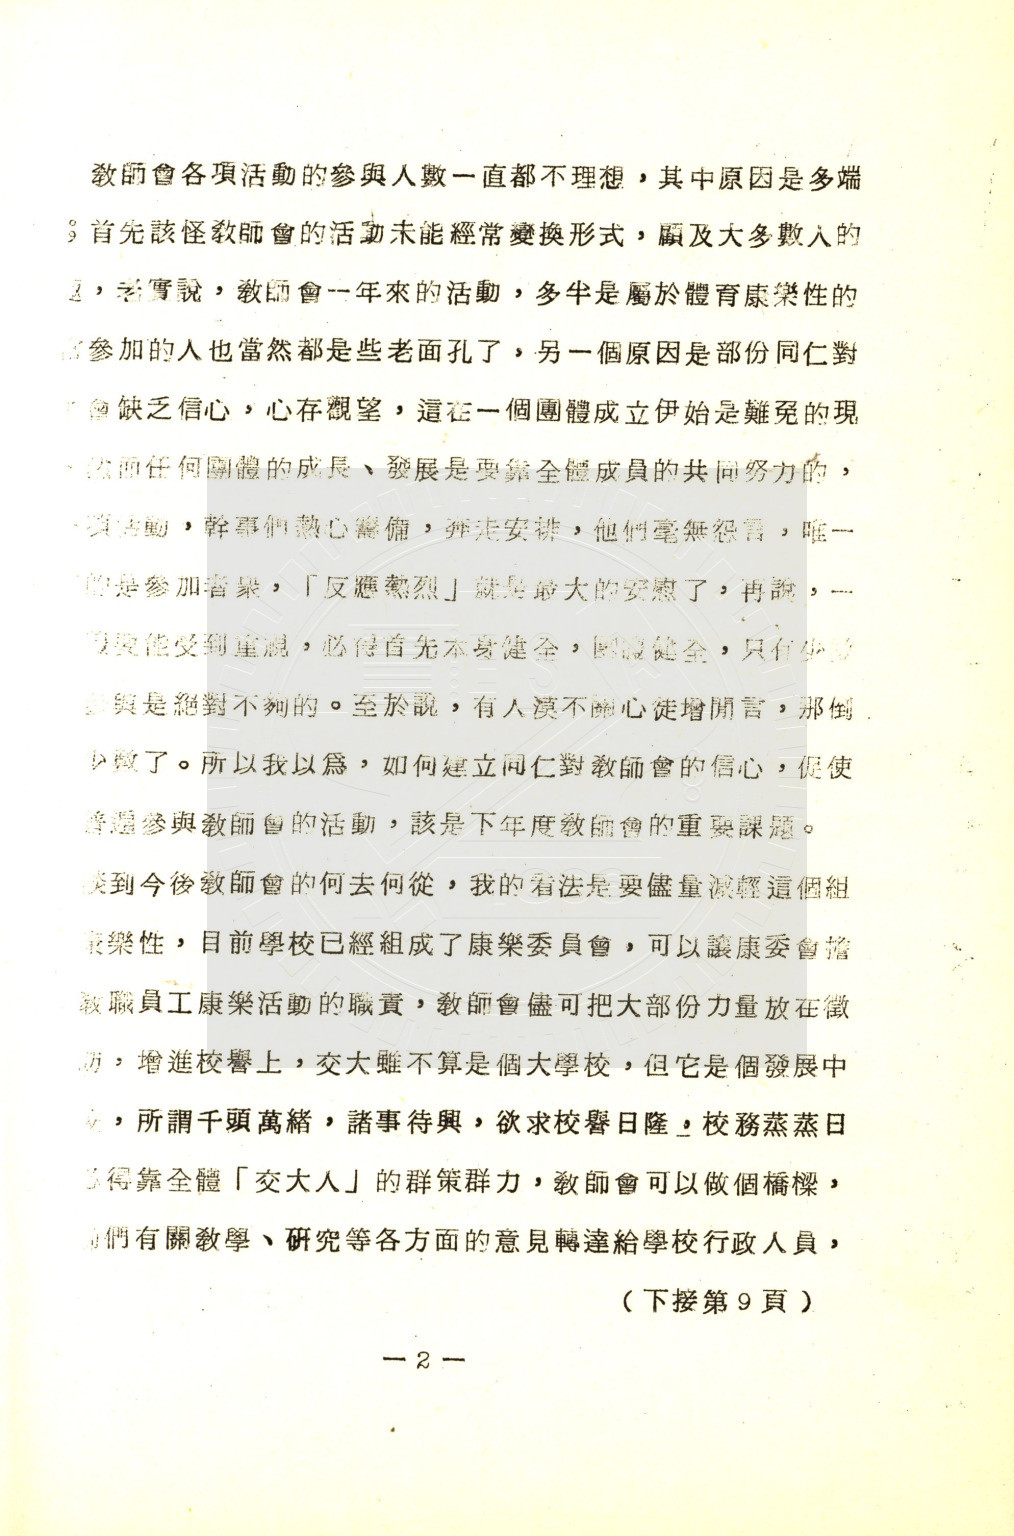 教師會各項活動的參與人數一直都不理想，其中原因是多端
。首先該怪教師會的活動未能經常變換形式，顧及大多數人的
，老實說，教師會一年來的活動，多半是屬於體育康樂性的
參加的人也當然都是些老面孔了，另一個原因是部份同仁對
會缺乏信心，心存觀望，這在一個團體成立伊始是難免的現
然而任何團體的成長、發展是要靠全體成員的共同努力的，
項活動，幹事們熱心籌備，奔走安排，他們毫無怨言，唯一
的是參加者衆，「反應熱烈」就是最大的安慰了，再說，一
要能受到重視，必得首先本身健全，團體健全，只有少數
參與是絕對不夠的。至於說，有人漠不關心徒增閒言，那倒
少數了。所以我以爲，如何建立同仁對教師會的信心，促使
普遍參與教師會的活動，該是下年度教師會的重要課題。
談到今後教師會的何去何從，我的看法是要儘量減輕這個組
康樂性，目前學校已經組成了康樂委員會，可以讓康委會擔
教職員工康樂活動的職責，教師會儘可把大部份力量放在徵
，增進校譽上，交大雖不算是個大學校，但它是個發展中
，所謂千頭萬緒，諸事待興，欲求校譽日隆，校務蒸蒸日
得靠全體「交大人」的群策群力，教師會可以做個橋樑，
們有關教學、研究等各方面的意見轉達給學校行政人員，
（下接第9頁）
—2—